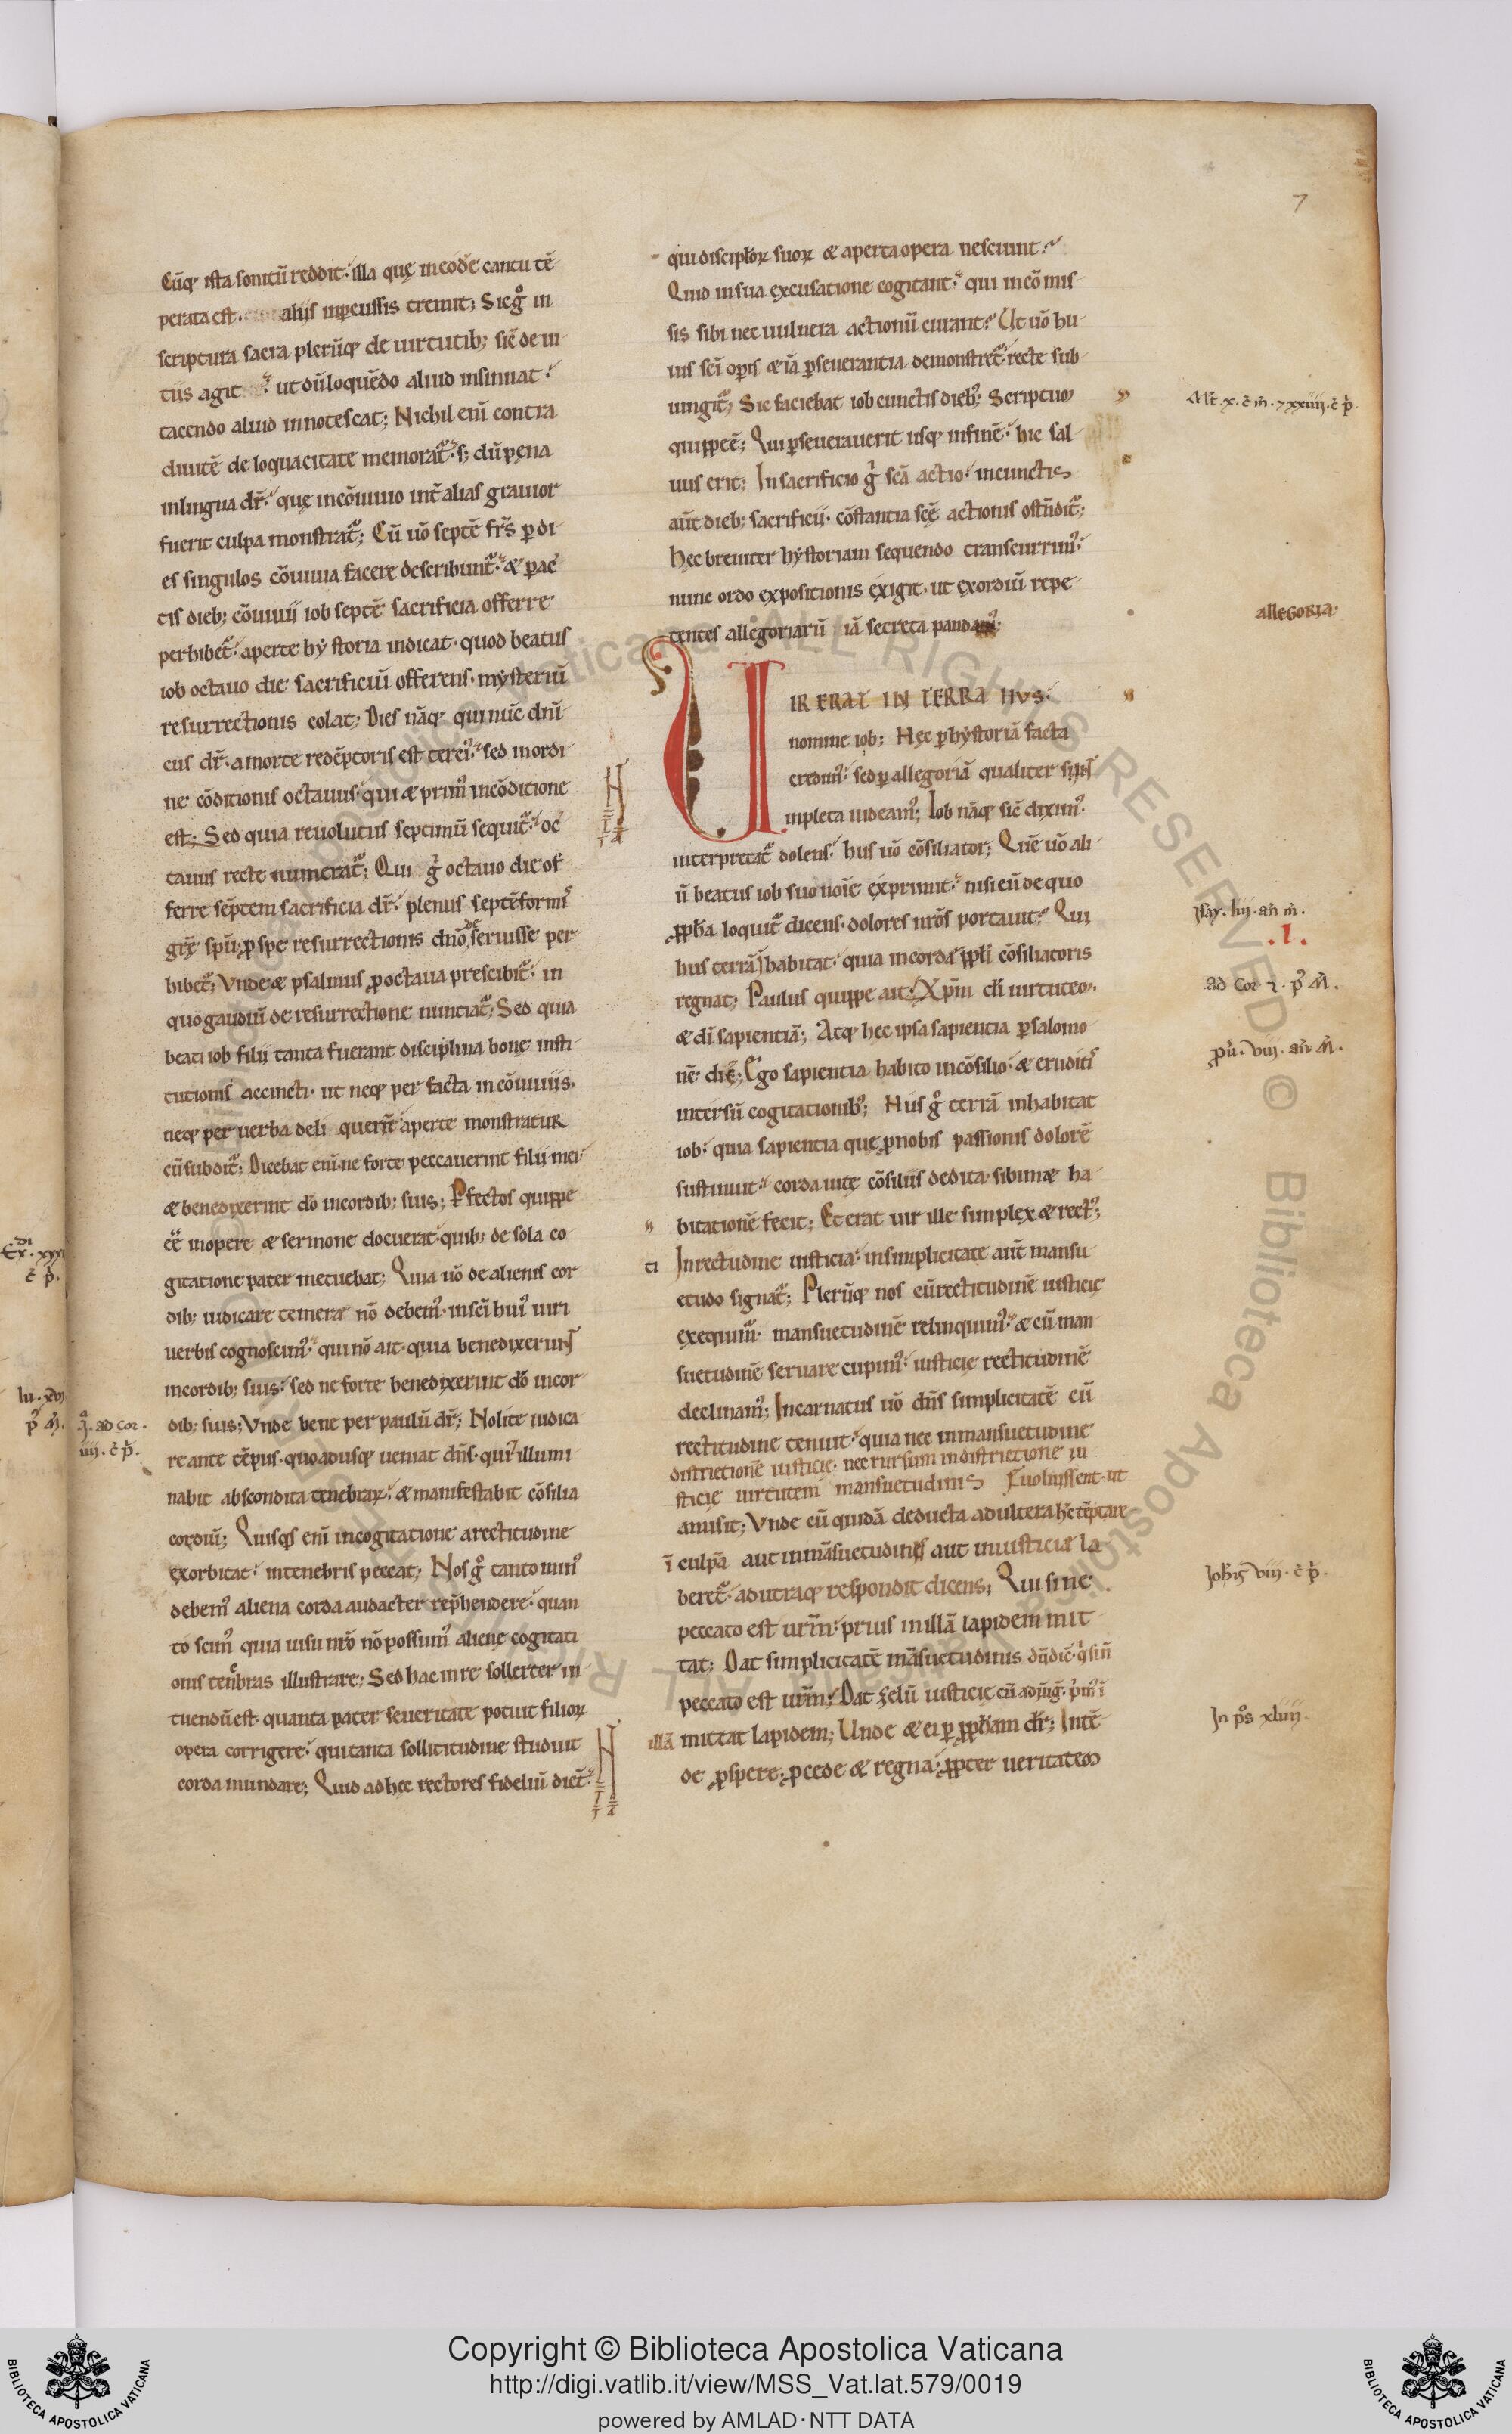 7
Cũq; ista sonitũ reddit. illa quę in eodē cantu tē
perata est. aliis inpcussis tremit; Sic gͦ in
scriptura sacra plerũq; de uirtutib; sic̃ de ui
tiis agit ut dũ loquẽdo aliud insinuat.
tacendo aliud innotescat; Nichil eni᷑ contra
diuitẽ de loquacitate memorat᷑. s; dũ pęna
in lingua dr̃. quę in cõuiuio int̃ alias grauior
fuerit culpa monstrat᷑; Cũ uõ septẽ frs̃ p di
es singulos cõuiuia facere describunt᷑. & pac
tis dieb; cõuiuii iob septẽ sacrificia offerre
perhibet᷑. aperte hẏstoria indicat. quod beatus
iob octauo die sacrificiũ offerens. mẏsteriũ
resurrectionis colat; Dies nãq; qui nũc dn̄i
cus dr̃. a morte redẽptoris est terci᷒. sed in ordi
ne cõditionis octauus. qui & prim᷒ in cõditione
est; Sed quia reuolutus septimũ sequit᷑. oc
tauus recte numerat᷑; Qui gͥ octauo die of
ferre septem sacrificia dr̃. plenus septẽformis
grę̃ spũ. p spe resurrectionis dño deseruisse per
hibet᷑; Vnde & psalmus p octaua prescibit᷑. in
quo gaudiũ de resurrectione nunciat᷑; Sed quia
beati iob filii tanta fuerant disciplina bone insti
tutionis accincti. ut neq; per facta in cõuiuiis.
neq; per uerba deli querẽt aperte monstratur
cũ subdit᷑; Dicebat eni᷑. ne forte peccauerint filii mei
& benedixerint dõ in cordib; suis; Pfectos quippe
eẽ in opere & sermone docuerat. quib; de sola co
gitatione pater metuebat; Quia uõ de alienis cor
dib; iudicare temere nõ debem᷒. in sc̄i hui᷒ uiri
uerbis cognoscim᷒. qui nõ ait. quia benedixerunt
in cordib; suis. sed ne forte benedixerint dõ in cor
dib; suis; Vnde bene per paulũ dr̃; Nolite iudica
re ante tẽpus. quo adusq; ueniat dñs. qui & illumi
nabit abscondita tenebraꝝ. & manifestabit cõsilia
cordiũ; Quisqs eni᷑ in cogitatione a rectitudine
exorbitat. in tenebris peccat; Nos gͦ tanto min᷒
debem᷒ aliena corda audacter rep̃hendere. quan
to scim᷒ quia uisu nr̃o nõ possum᷒ alienę cogitati
onis tenẽbras illustrare; Sed hac in re sollerter in
tuendũ est. quanta pater seueritate potuit filioꝝ
opera corrigere. qui tanta sollicitudine studuit
corda mundare; Quid ad hec rectores fideliũ dicẽt.
qui discipl̃oꝝ suoꝝ & aperta opera nesciunt.
Quid in sua excusatione cogitant. qui in cõmis
sis sibi nec uulnera actionũ curant. Ut uõ hu
ius sc̄i opis & iã pseuerantia demonstret᷑. recte sub
iungit᷑; Sic faciebat iob cunctis dieb᷒; Scriptũ
quippe ẽ; Qui pseuerauerit usq; in finẽ. hic sal
uus erit; In sacrificio gͥ sc̄ã actio. in cunctis
aũt dieb; sacrificii. cõstantia sc̄ę actionis ostñdit᷑;
Hęc breuiter hẏstoriam sequendo transcurrim᷒.
nunc ordo expositionis exigit. ut exordiũ repe
tentes allegoriarũ iã secreta pandam᷒;
UIR ERAT IN TERRA HVS.
nomine iob; Hęc p hẏstoriã facta
credim᷒. sed p allegoriã qualiter sint
inpleta uideam᷒; Iob nãq; sic̃ dixim᷒.
interpretat᷑ dolens. hus uõ cõsiliator; Quẽ uõ ali
ũ beatus iob suo noĩe exprimit. nisi eũ de quo
ꝓph̃a loquit᷑ dicens. dolores nr̃os portauit. Qui
hus terrã habitat. quia in corda ppl̃i cõsiliatoris
regnat; Paulus quippe ait; Xp̃m di᷑ uirtutem.
& di᷑ sapientiã; Atq; hęc ipsa sapientia p salomo
nẽ dic̃; Ego sapientia habito in cõsilio. & eruditis
intersũ cogitationib᷒; Hus gͦ terrã inhabitat
iob. quia sapientia que p nobis passionis dolorẽ
sustinuit. corda uitę cõsiliis dedita. sibimet ha
bitationẽ fecit; Et erat uir ille simplex & rect᷒;
In rectitudine iusticia. in simplicitate aũt mansu
etudo signat᷑; Plerũq; nos cũ rectitudinẽ iusticię
exequim᷑. mansuetudinẽ relinquim᷒. & cũ man
suetudinẽ seruare cupim᷒. iusticię rectitudinẽ
declinam᷒; Incarnatus uõ dñs simplicitatẽ cũ
rectitudine tenuit. quia nec in mansuetudine
districtionẽ iusticię. nec rursum in districtione iu
sticię uirtutem mansuetudinis
amisit; Vnde cũ quidã deducta adultera hc̃ tẽptare
uoluissent. ut
ĩ culpã aut inmãsuetudinis aut iniusticię la
beret᷑. ad utraq; respondit dicens; Qui sine
peccato est urm̃. prius in illã lapidem mit
tat; Dat simplicitatẽ mãsuetudinis dũ dic̃. qͥ sin̄
peccato est urm̃; Dat zelũ iusticię cũ adiũg̃. pͥm᷒ ĩ
illã mittat lapidem; Unde & ei p ꝓph̃am dr̃; Intẽ
de ꝓspere. ꝓcede & regna. ꝓpter ueritatem
Mt̃. x. c̃ m̃. 7 xxiiii. c̃ p̃.
allegoria.
Isay. liii. añ m̃.
.I.
ad Cor. 1. p᷒ M̃.
pũ. viii. añ. M̃.
Joħis viii. c̃ p̃.
In ps xliiii.
ti
q̃. ad cor.
iiii. c̃ p̃.
Copyright © Biblioteca Apostolica Vaticana
http://digi.vatlib.it/view/MSS_Vat.lat.579/0019
powered by AMLAD·NTT DATA
BIBLIOTECA APOSTOLICA VATICANA
BIBLIOTECA APOSTOLICA VATICANA